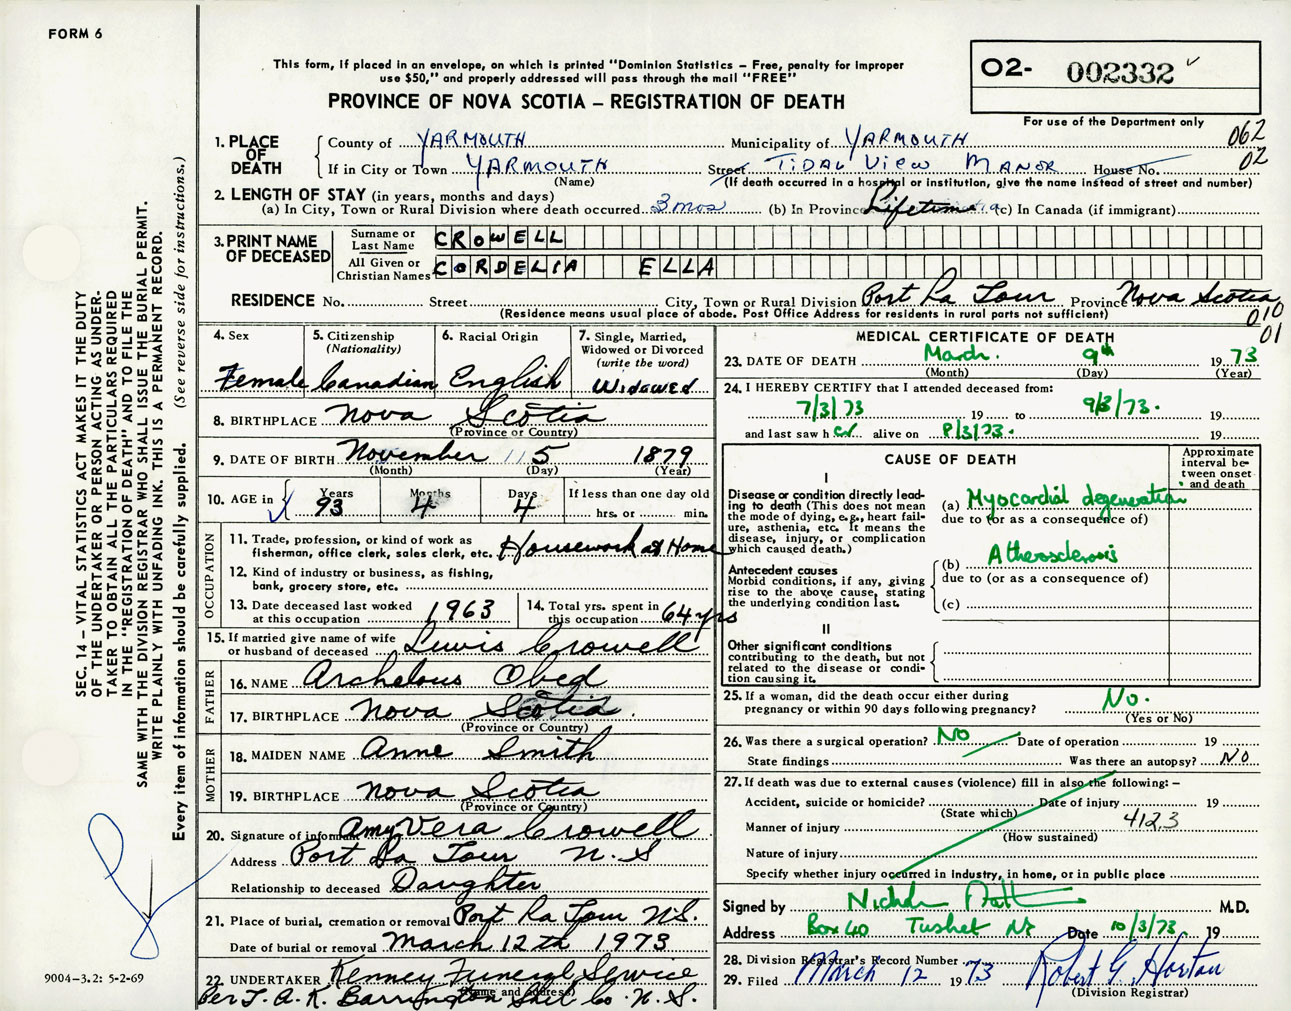 FORM 6
This form, if placed in an envelope, on which is printed "Dominion Statistics – Free, penalty for improper
use $50," and properly addressed will pass through the mail "FREE"
PROVINCE OF NOVA SCOTIA – REGISTRATION OF DEATH
O2- 002332
For use of the Department only
062
02
1. PLACE OF DEATH
County of YARMOUTH Municipality of YARMOUTH
If in City or Town YARMOUTH Street TIDAL VIEW MANOR House No.
(Name) (If death occurred in a hospital or institution, give the name instead of street and number)
2. LENGTH OF STAY (in years, months and days)
(a) In City, Town or Rural Division where death occurred 3 mos (b) In Province Lifetime (c) In Canada (if immigrant)
3. PRINT NAME OF DECEASED
Surname or Last Name CROWELL
All Given or Christian Names CORDELIA ELLA
RESIDENCE No. Street City, Town or Rural Division Port La Tour Province Nova Scotia
(Residence means usual place of abode. Post Office Address for residents in rural parts not sufficient)
010
01
4. Sex
Female
5. Citizenship
(Nationality)
Canadian
6. Racial Origin
English
7. Single, Married,
Widowed or Divorced
(write the word)
Widowed
8. BIRTHPLACE Nova Scotia
(Province or Country)
9. DATE OF BIRTH November 5 1879
(Month) (Day) (Year)
10. AGE in Years 93 Months 4 Days 4
If less than one day old
hrs. or min.
OCCUPATION
11. Trade, profession, or kind of work as
fisherman, office clerk, sales clerk, etc. Housework at Home
12. Kind of industry or business, as fishing,
bank, grocery store, etc.
13. Date deceased last worked
at this occupation 1963
14. Total yrs. spent in
this occupation 64 yrs
15. If married give name of wife
or husband of deceased Lewis Crowell
FATHER
16. NAME Archelous Obed
17. BIRTHPLACE Nova Scotia
(Province or Country)
MOTHER
18. MAIDEN NAME Anne Smith
19. BIRTHPLACE Nova Scotia
(Province or Country)
20. Signature of informant Amy Vera Crowell
Address Port La Tour N.S
Relationship to deceased Daughter
21. Place of burial, cremation or removal Port La Tour N.S.
Date of burial or removal March 12th 1973
22. UNDERTAKER Kenney Funeral Service
(Name and address)
Per T. A. K. Barrington Shel Co. N.S.
MEDICAL CERTIFICATE OF DEATH
23. DATE OF DEATH March 9th 1973
(Month) (Day) (Year)
24. I HEREBY CERTIFY that I attended deceased from:
7/3/73 19 to 9/3/73. 19
and last saw h er alive on 8/3/73. 19
CAUSE OF DEATH
Approximate
interval be-
tween onset
and death
I
Disease or condition directly lead-
ing to death (This does not mean
the mode of dying, e.g., heart fail-
ure, asthenia, etc. It means the
disease, injury, or complication
which caused death.)
(a) Myocardial degeneration
due to (or as a consequence of)
Antecedent causes
Morbid conditions, if any, giving
rise to the above cause, stating
the underlying condition last.
(b) Atherosclerosis
due to (or as a consequence of)
(c)
II
Other significant conditions
contributing to the death, but not
related to the disease or condi-
tion causing it.
25. If a woman, did the death occur either during
pregnancy or within 90 days following pregnancy? No.
(Yes or No)
26. Was there a surgical operation? No Date of operation 19
State findings Was there an autopsy? No
27. If death was due to external causes (violence) fill in also the following: –
Accident, suicide or homicide? Date of injury 19
(State which)
Manner of injury 4123
(How sustained)
Nature of injury
Specify whether injury occurred in Industry, in home, or in public place
Signed by M.D.
Address Box 40 Tusket NS Date 10/3/73 19
28. Division Registrar's Record Number
29. Filed March 12 1973 Robert G. Horton
(Division Registrar)
SEC. 14 – VITAL STATISTICS ACT MAKES IT THE DUTY
OF THE UNDERTAKER OR PERSON ACTING AS UNDER-
TAKER TO OBTAIN ALL THE PARTICULARS REQUIRED
IN THE "REGISTRATION OF DEATH" AND TO FILE THE
SAME WITH THE DIVISION REGISTRAR WHO SHALL ISSUE THE BURIAL PERMIT.
WRITE PLAINLY WITH UNFADING INK. THIS IS A PERMANENT RECORD.
Every item of information should be carefully supplied. (See reverse side for instructions.)
9004–3.2: 5-2-69